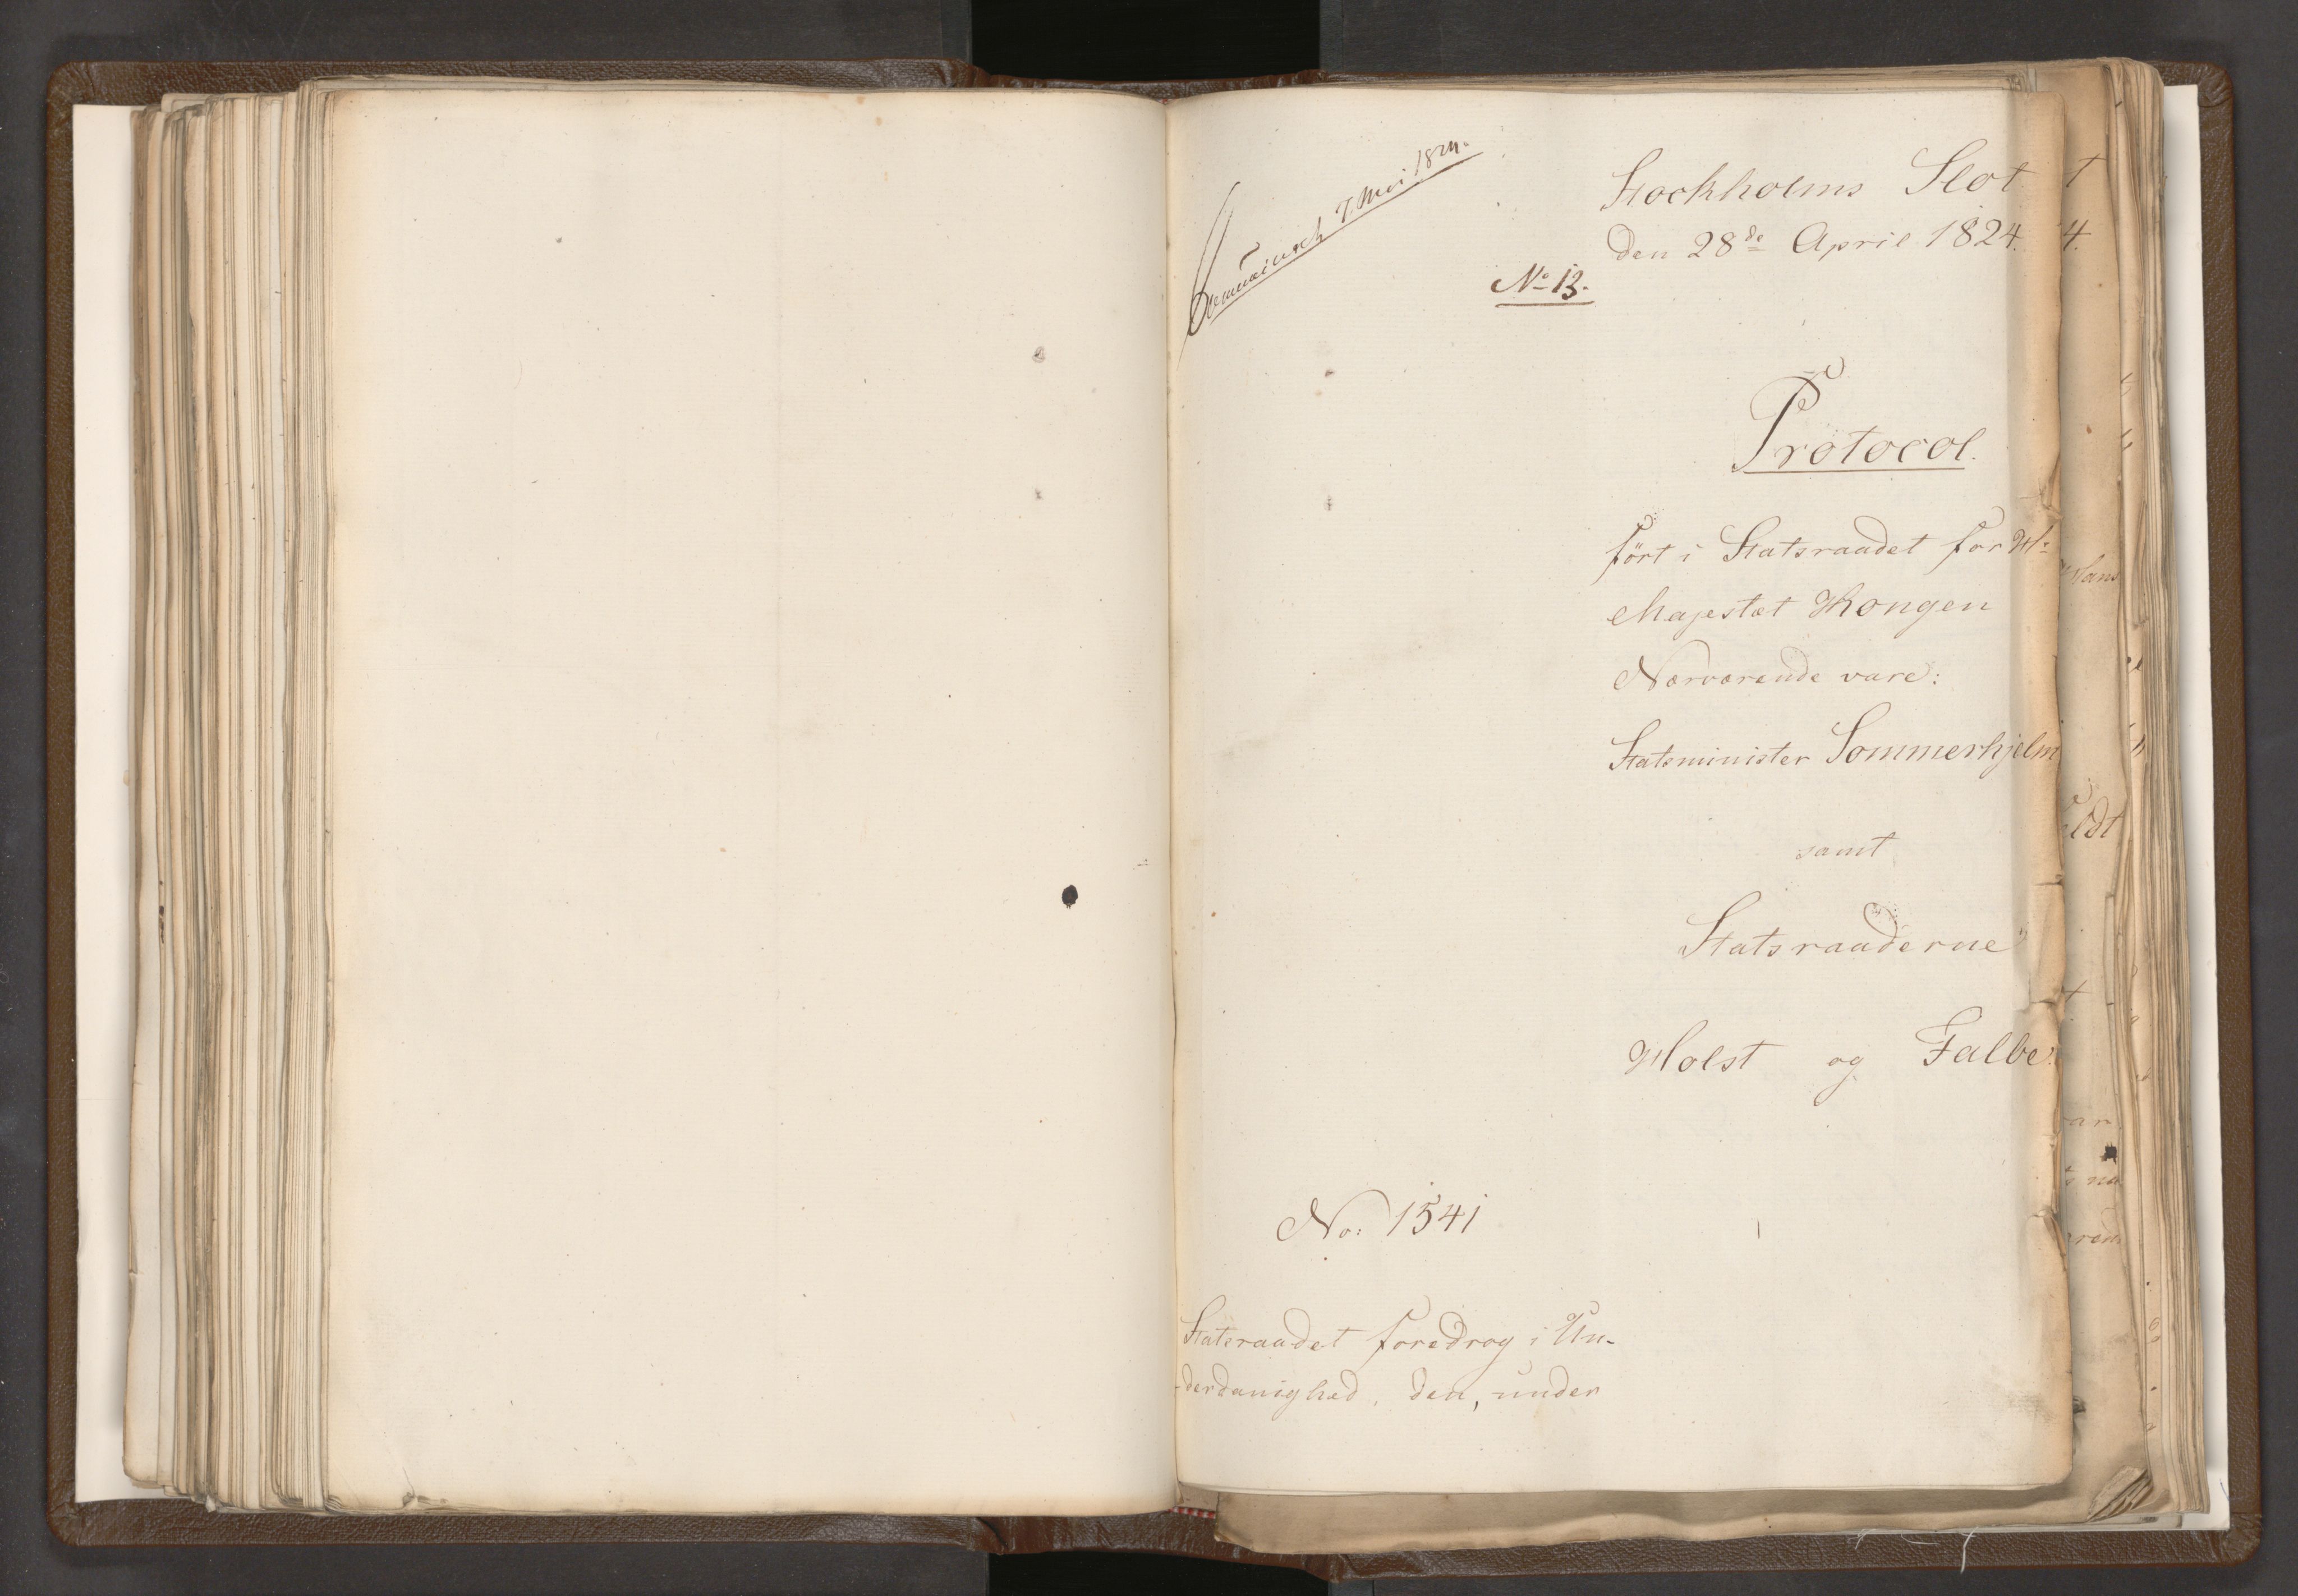 7. Mai 1824.
Stockholms Slot
den 28de April 1824.
No 13.
Protocol.
ført i Statsraadet for H:
Majestæt Kongen
Nærværende vare:
Statsminister Sommerhjelm
samt
Statsraaderne
Holst og Falbe.
No: 1541
Statsraadet foredrog i Un-
-derdanighed, den, under